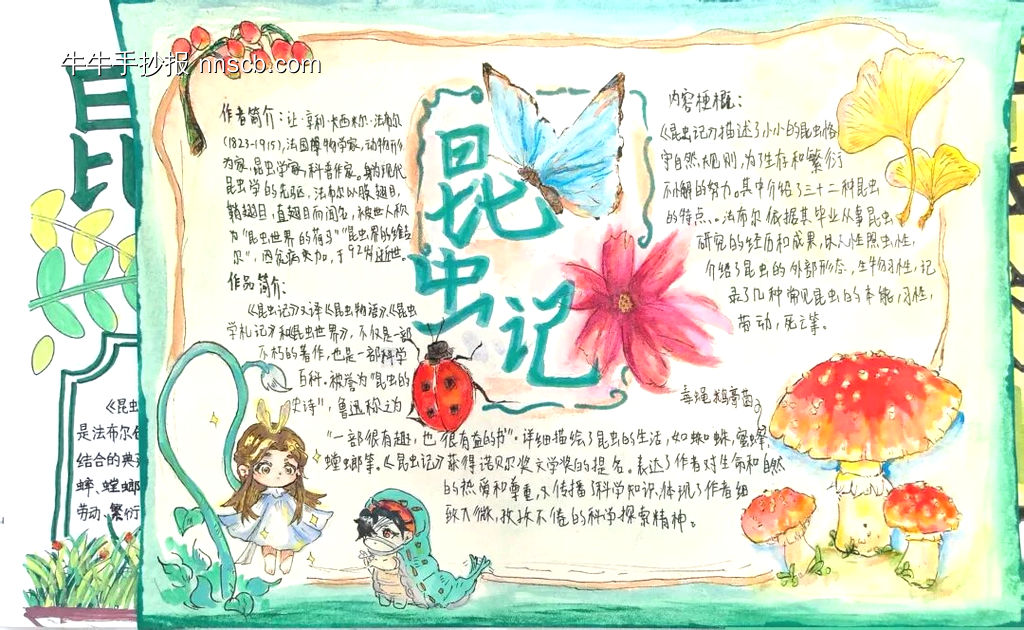 牛牛手抄报 nnscb.com
昆虫记
作者简介：让·亨利·卡西米尔·法布尔
(1823-1915)，法国博物学家，动物行
为家，昆虫学家，科普作家。
昆虫学的先驱，法布尔以膜翅目，
鞘翅目，直翅目而闻名，被世人称
为"昆虫世界的荷马""昆虫界的维吉
尔"，因食病更加，于92岁逝世。
作品简介：
《昆虫记》又译《昆虫物语》《昆虫
学札记》和《昆虫世界》，不仅是一部
不朽的著作，也是一部科学
百科，被誉为"昆虫的
史诗"，鲁迅称之为
"一部很有趣，也很有益的书"。详细描绘了昆虫的生活，如蜘蛛，蜜蜂，
螳螂等。《昆虫记》获得诺贝尔奖文学奖的提名。表达了作者对生命和自然
的热爱和尊重，传播了科学知识，体现了作者细
致入微，孜孜不倦的科学探索精神。
内容梗概：
《昆虫记》描述了小小的昆虫恪
守自然规则，为了生存和繁衍
不懈的努力。其中介绍了三十二种昆虫
的特点、。法布尔依据其毕业从事昆虫
研究的经历和成果，以人性照虫性，
介绍了昆虫的外部形态，生物习性，记
录了几种常见昆虫的本能，习性，
劳动，死亡等。
毒蝇鹅膏菌
昆
《昆虫
是法布尔
结合的典
蟀、螳螂
劳动、繁衍